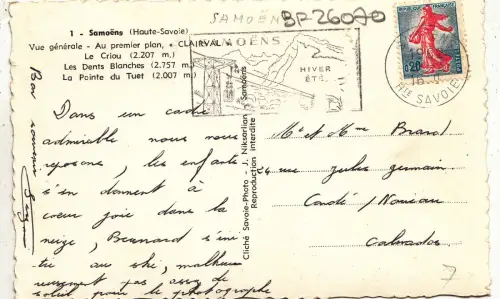 SAMOËN
BP-26070
1 - Samoëns (Haute-Savoie)
Vue générale - Au premier plan, « CLAIRVAL »
Le Criou (2.207 m.)
Les Dents Blanches (2.757 m.)
La Pointe du Tuet (2.007 m.)
SAMOËNS
HIVER
ÉTÉ
REPUBLIQUE FRANÇAISE
0,20
POSTES
HTE SAVOIE
Bon souvenir
Dans un cadre
admirable nous nous
reposons, les enfants
s'en donnent à
coeur joie dans la
neige, Bernard s'ini-
tie au ski, malheu
reusement pas assez de
soleil pour le photographe
Cliché Savoie-Photo - J. Niksarlian à Samoëns
Reproduction interdite
Mr et Mme Brard
rue Jules germain
Condé / Noireau
Calvados
7